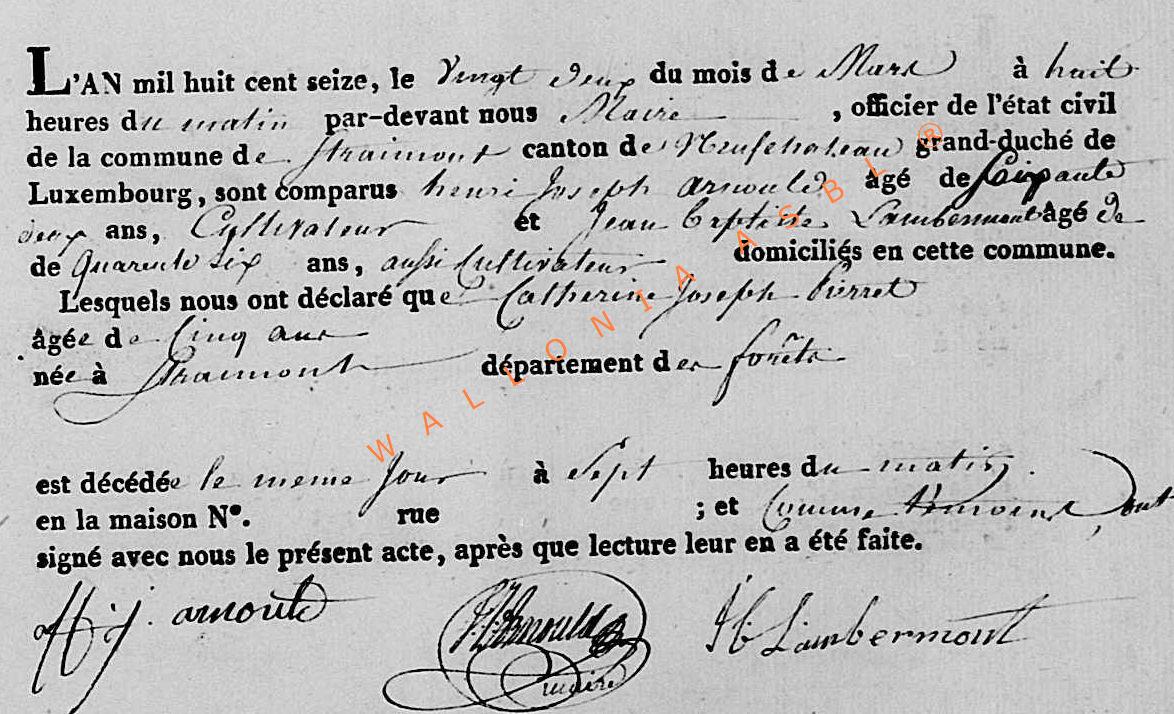 L'AN mil huit cent seize, le Vingt deux du mois de Mars à huit
heures du matin par-devant nous Maire , officier de l'état civil
de la commune de Straimont canton de Neufchateau grand-duché de
Luxembourg, sont comparus henri Joseph arnould âgé de Soixante
deux ans, Cultivateur et Jean Baptiste Lambermont âgé de
de Quarente six ans, aussi Cultivateur domiciliés en cette commune.
Lesquels nous ont déclaré que Catherine Joseph Pierret
âgée de Cinq ans
née à Straimont département des forêts
est décédée le meme Jour à Sept heures du matin .
en la maison N°. rue ; et Comme temoins ont
signé avec nous le présent acte, après que lecture leur en a été faite.
H j. arnould J.J. Arnould JB Lambermont
maire
WALLONIA ASBL ®